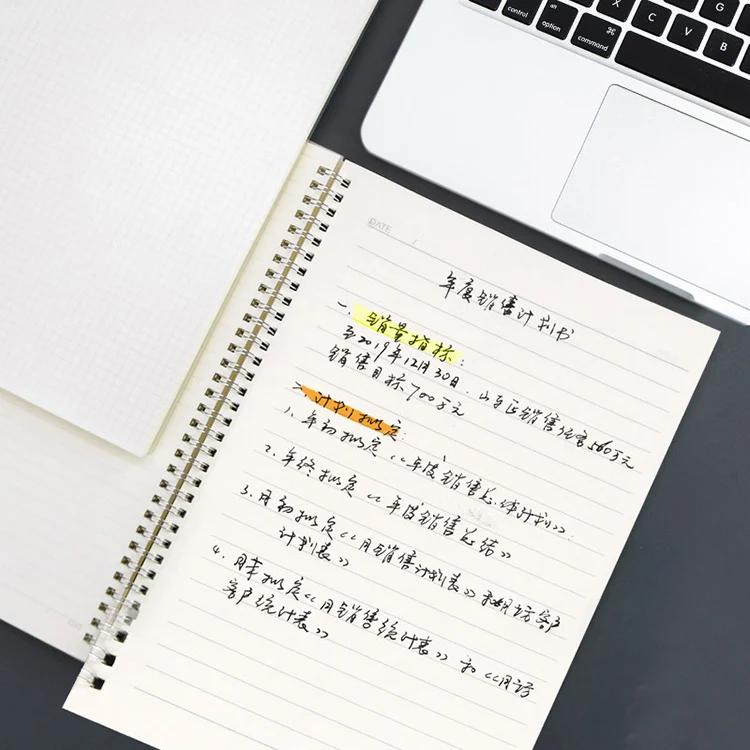 control
alt
option
⌘
command
X
C
V
B
G
DATE /
年度销售计划书
一、销量指标:
至2019年12月30日,山东区销售任务560万元
销售目标700万元
二、计划拟定:
1、年初拟定《年度销售总体计划》;
2、年终拟定《年度销售总结》
3、月初拟定《月销售计划表》和月访客户
计划表》
4、月末拟定《月销售统计表》和《月访
客户统计表》